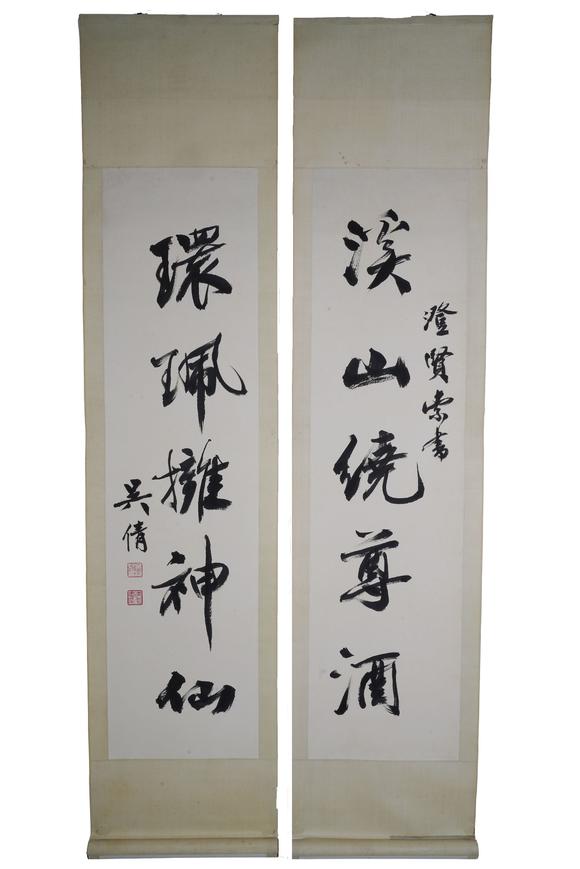 澄賢索書
溪山繞尊酒
環珮擁神仙
吳倩